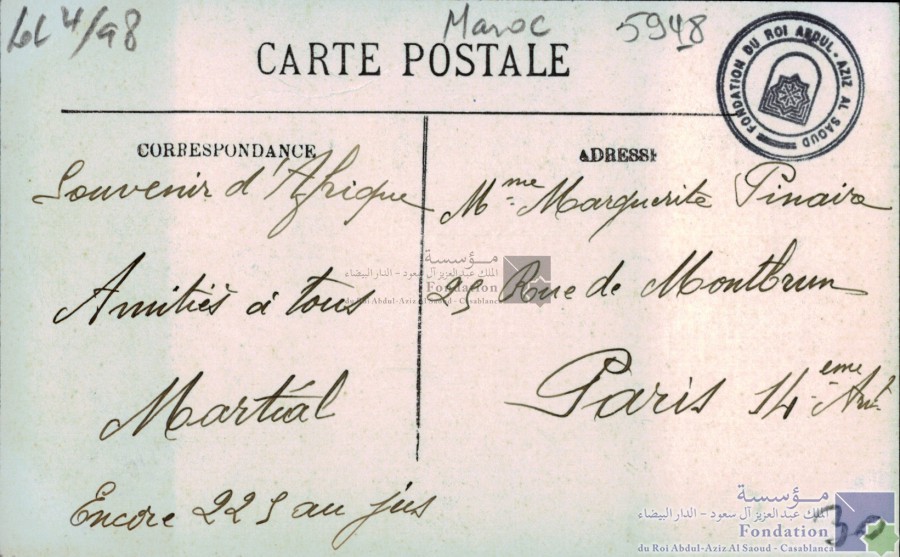 LL 4/98
Maroc
5948
CARTE POSTALE
FONDATION DU ROI ABDUL-AZIZ AL SAOUD
CORRESPONDANCE
Souvenir d'Afrique
Amitiés à tous
Martial
Encore 225 au jus
ADRESSE
Mme Marguerite Pinaire
25 Rue de Montbrun
Paris 14 eme Art
مؤسسة
الملك عبد العزيز آل سعود - الدار البيضاء
Fondation
du Roi Abdul-Aziz Al Saoud - Casablanca
مؤسسة
الملك عبد العزيز آل سعود - الدار البيضاء
Fondation
du Roi Abdul-Aziz Al Saoud - Casablanca
30